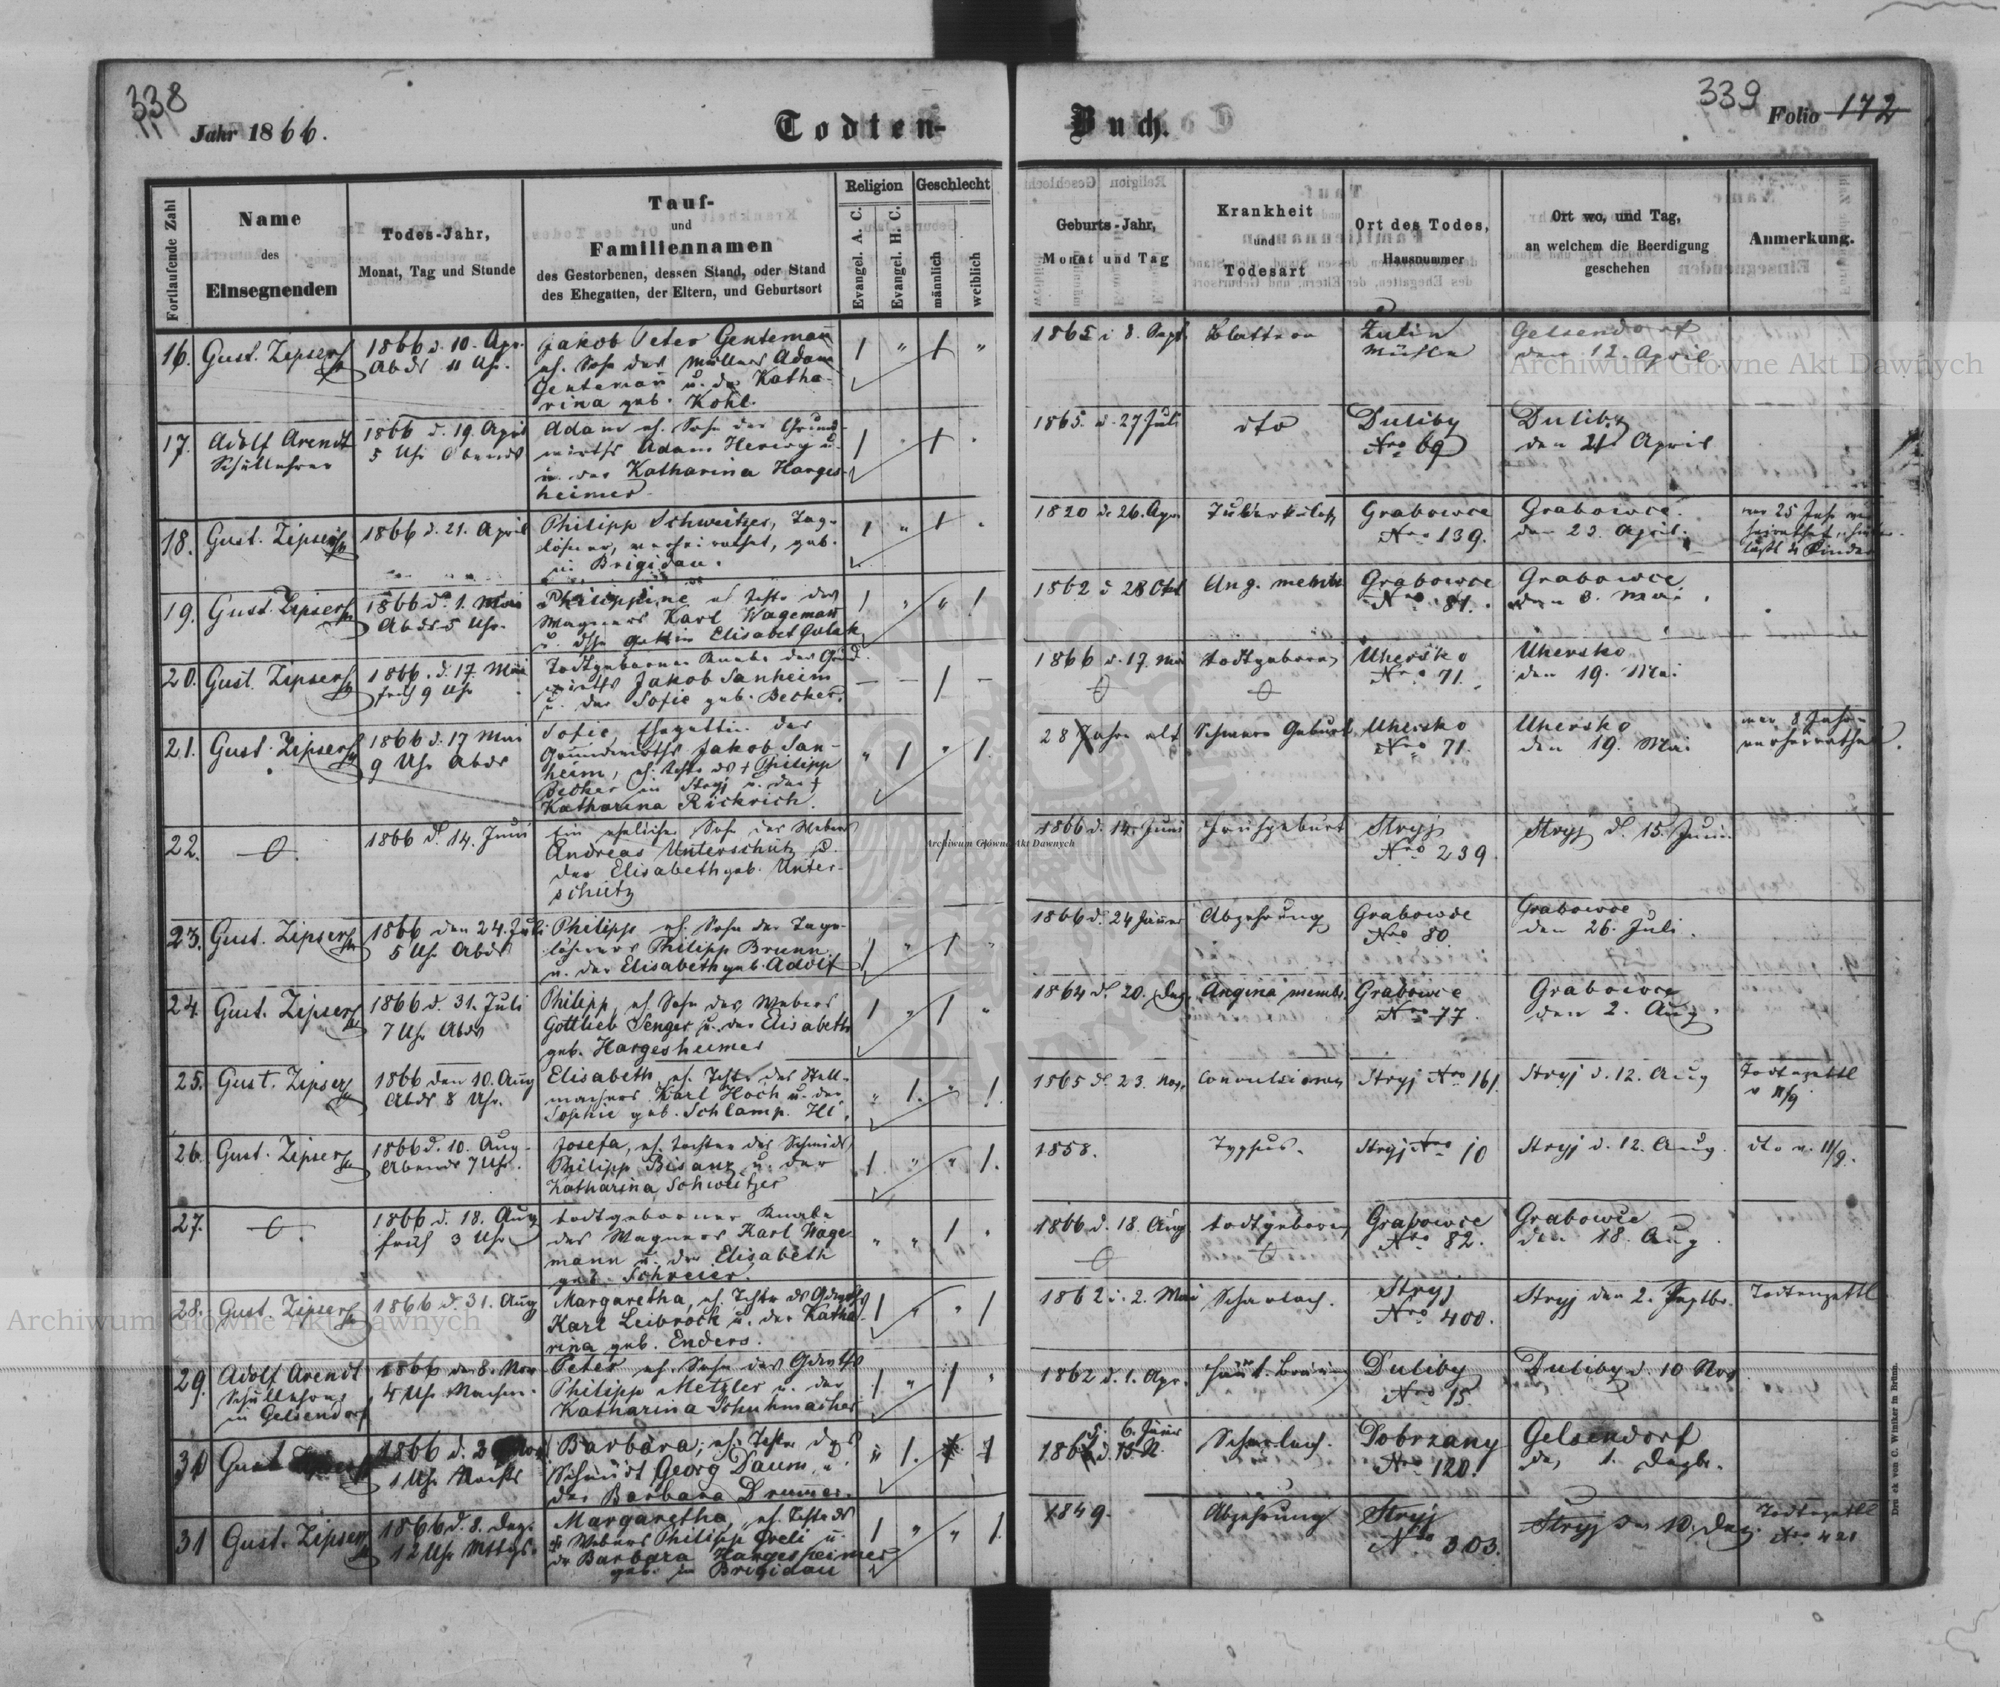 338
339
Jahr 1866.
Todten-
Buch.
Folio 172
Fortlaufende Zahl
Name
des
Einsegnenden
Todes-Jahr,
Monat, Tag und Stunde
Tauf-
und
Familiennamen
des Gestorbenen, dessen Stand, oder Stand
des Ehegatten, der Eltern, und Geburtsort
Religion
Evangel. A. C.
Evangel. H. C.
Geschlecht
männlich
weiblich
Geburts-Jahr,
Monat und Tag
Krankheit
und
Todesart
Ort des Todes,
Hausnummer
Ort wo, und Tag,
an welchem die Beerdigung
geschehen
Anmerkung.
16. Gust. Zipser
1866 d. 10. Apr.
Abds 11 Uhr.
Jakob Peter Gentemann
eh. Sohn des Müllers Adam
Gentemann u. der Katha-
rina geb. Kohl.
1865 8. Sept.
Blattern
Zulin
Mühle
Gelsendorf
den 12. April
17. Adolf Arendt
Schullehrer
1866 d. 19. April
5 Uhr Abends
Adam eh. Sohn des Grund-
wirths Adam Herwig u.
der Katharina Harges-
heimer
1865. d. 27 Juli
dto
Duliby
Nro 69
Duliby
den 21. April
18. Gust. Zipser
1866 d. 21. April
Philipp Schweitzer, Tag-
löhner, verheirathet, geb.
in Brigidau.
1820 d. 26. Apr.
Tuberkulose
Grabowce
Nro 139.
Grabowce.
den 23. April.
war 25 Jahr ver-
heirathet, hinter-
läßt 4 Kinder
19. Gust. Zipser
1866 d. 1. Mai
Abds 5 Uhr.
Philippine eh Tochter des
Wagners Karl Wagemann
u. Elisabet
1862 d 28 Okt
Ang. membr
Grabowce
Nro 81.
Grabowce
den 3. Mai.
20. Gust. Zipser
1866. d. 17. Mai
früh 9 Uhr
Todtgeborner Knabe des Grund-
wirths Jakob Sanheim
u. der Sofie geb. Becker.
1866 d. 17. Mai
todtgeboren
Uhersko
Nro 71.
Uhersko
den 19. Mai
21. Gust. Zipser
1866 d. 17 Mai
9 Uhr Abds
Sofie, Ehegattin des
Grundwirths Jakob San-
heim, eh. Tochter des † Philipp
Becker in Stryj u. der †
Katharina Rickrich.
28 Jahre alt
Schwere Geburt
Uhersko
Nro 71.
Uhersko
den 19. Mai
war 8 Jahr
verheirathet.
22.
1866 d. 14. Juni
Ein ehelicher Sohn des Webers
Andreas Unterschütz u.
der Elisabeth geb. Unter-
schütz
1866 d. 14. Juni
Frühgeburt
Stryj
Nro 239.
Stryj d. 15. Juni.
23. Gust. Zipser
1866 den 24. Juli
5 Uhr Abds
Philipp eh. Sohn des Tage-
löhners Philipp Brunn
u. der Elisabeth geb. Adolf
1866 d. 24 Jänner
Abzehrung
Grabowce
Nro 80.
Grabowce
den 26. Juli.
24. Gust. Zipser
1866 d. 31. Juli
7 Uhr Abds
Philipp, eh Sohn des Webers
Gottlieb Senger u. der Elisabeth
geb. Hargesheimer
1864 d. 20. Dez.
Angina membr.
Grabowce
Nro 77.
Grabowce
den 2. Aug.
25. Gust. Zipser
1866 den 10. Aug
Abds 8 Uhr.
Elisabeth, eh. Tochter des Stell-
machers Karl Hoch u. der
Sophie geb. Schlamp.
1865 d. 23. Nov.
Convulsionen
Stryj Nro 161.
Stryj d. 12. Aug
Todtenzettl
v 11/9
26. Gust. Zipser
1866 d. 10. Aug.
Abends 7 Uhr.
Josefa, eh. Tochter des Schmieds
Philipp Bisanz u. der
Katharina Schweitzer
1858.
Typhus.
Stryj Nro 10
Stryj d. 12. Aug.
dto v. 11/9.
27.
1866 d. 18. Aug
früh 3 Uhr
todtgeborner Knabe
des Wagners Karl Wage-
mann u. der Elisabeth
geb. Schreier.
1866 d. 18. Aug
todtgeboren
Grabowce
Nro 82.
Grabowce
den 18. Aug.
28. Gust. Zipser
1866 d. 31. Aug
Margaretha, eh. Tochter des
Karl Leibrock u. der Katha-
rina geb. Enders.
1862 d. 2. Mai
Scharlach.
Stryj
Nro 400.
Stryj den 2. Septbr.
Todtenzettl
29. Adolf Arendt
Schullehrer
in Gelsendorf
1866 den 8. Nov
4 Uhr Nachm.
Peter eh. Sohn des
Philipp Metzler u. der
Katharina Schuhmacher
1862 d. 1. Apr.
häut. Bräune
Duliby
Nro 15.
Duliby d. 10 Nov
30 Gust Zipser
1866 d. Nov
1 Uhr Nachts
Barbara, eh. Tochter des
Schmied Georg Daum u.
der Barbara Drummer.
6. Jänner
Scharlach.
Dobrzany
Nro 120.
Gelsendorf
den 1. Dezbr.
31 Gust. Zipser
1866 d. 8. Dez.
12 Uhr Mttgs.
Margaretha, eh. Tochter des
Webers Philipp u.
der Barbara Hargesheimer
geb. in Brigidau
1849.
Abzehrung
Stryj
Nro 303.
Stryj den 10. Dez.
Todtenzettl
Nro 421
Druck von C. Winiker in Brünn.
Archiwum Główne Akt Dawnych
Archiwum Główne Akt Dawnych
Archiwum Główne Akt Dawnych